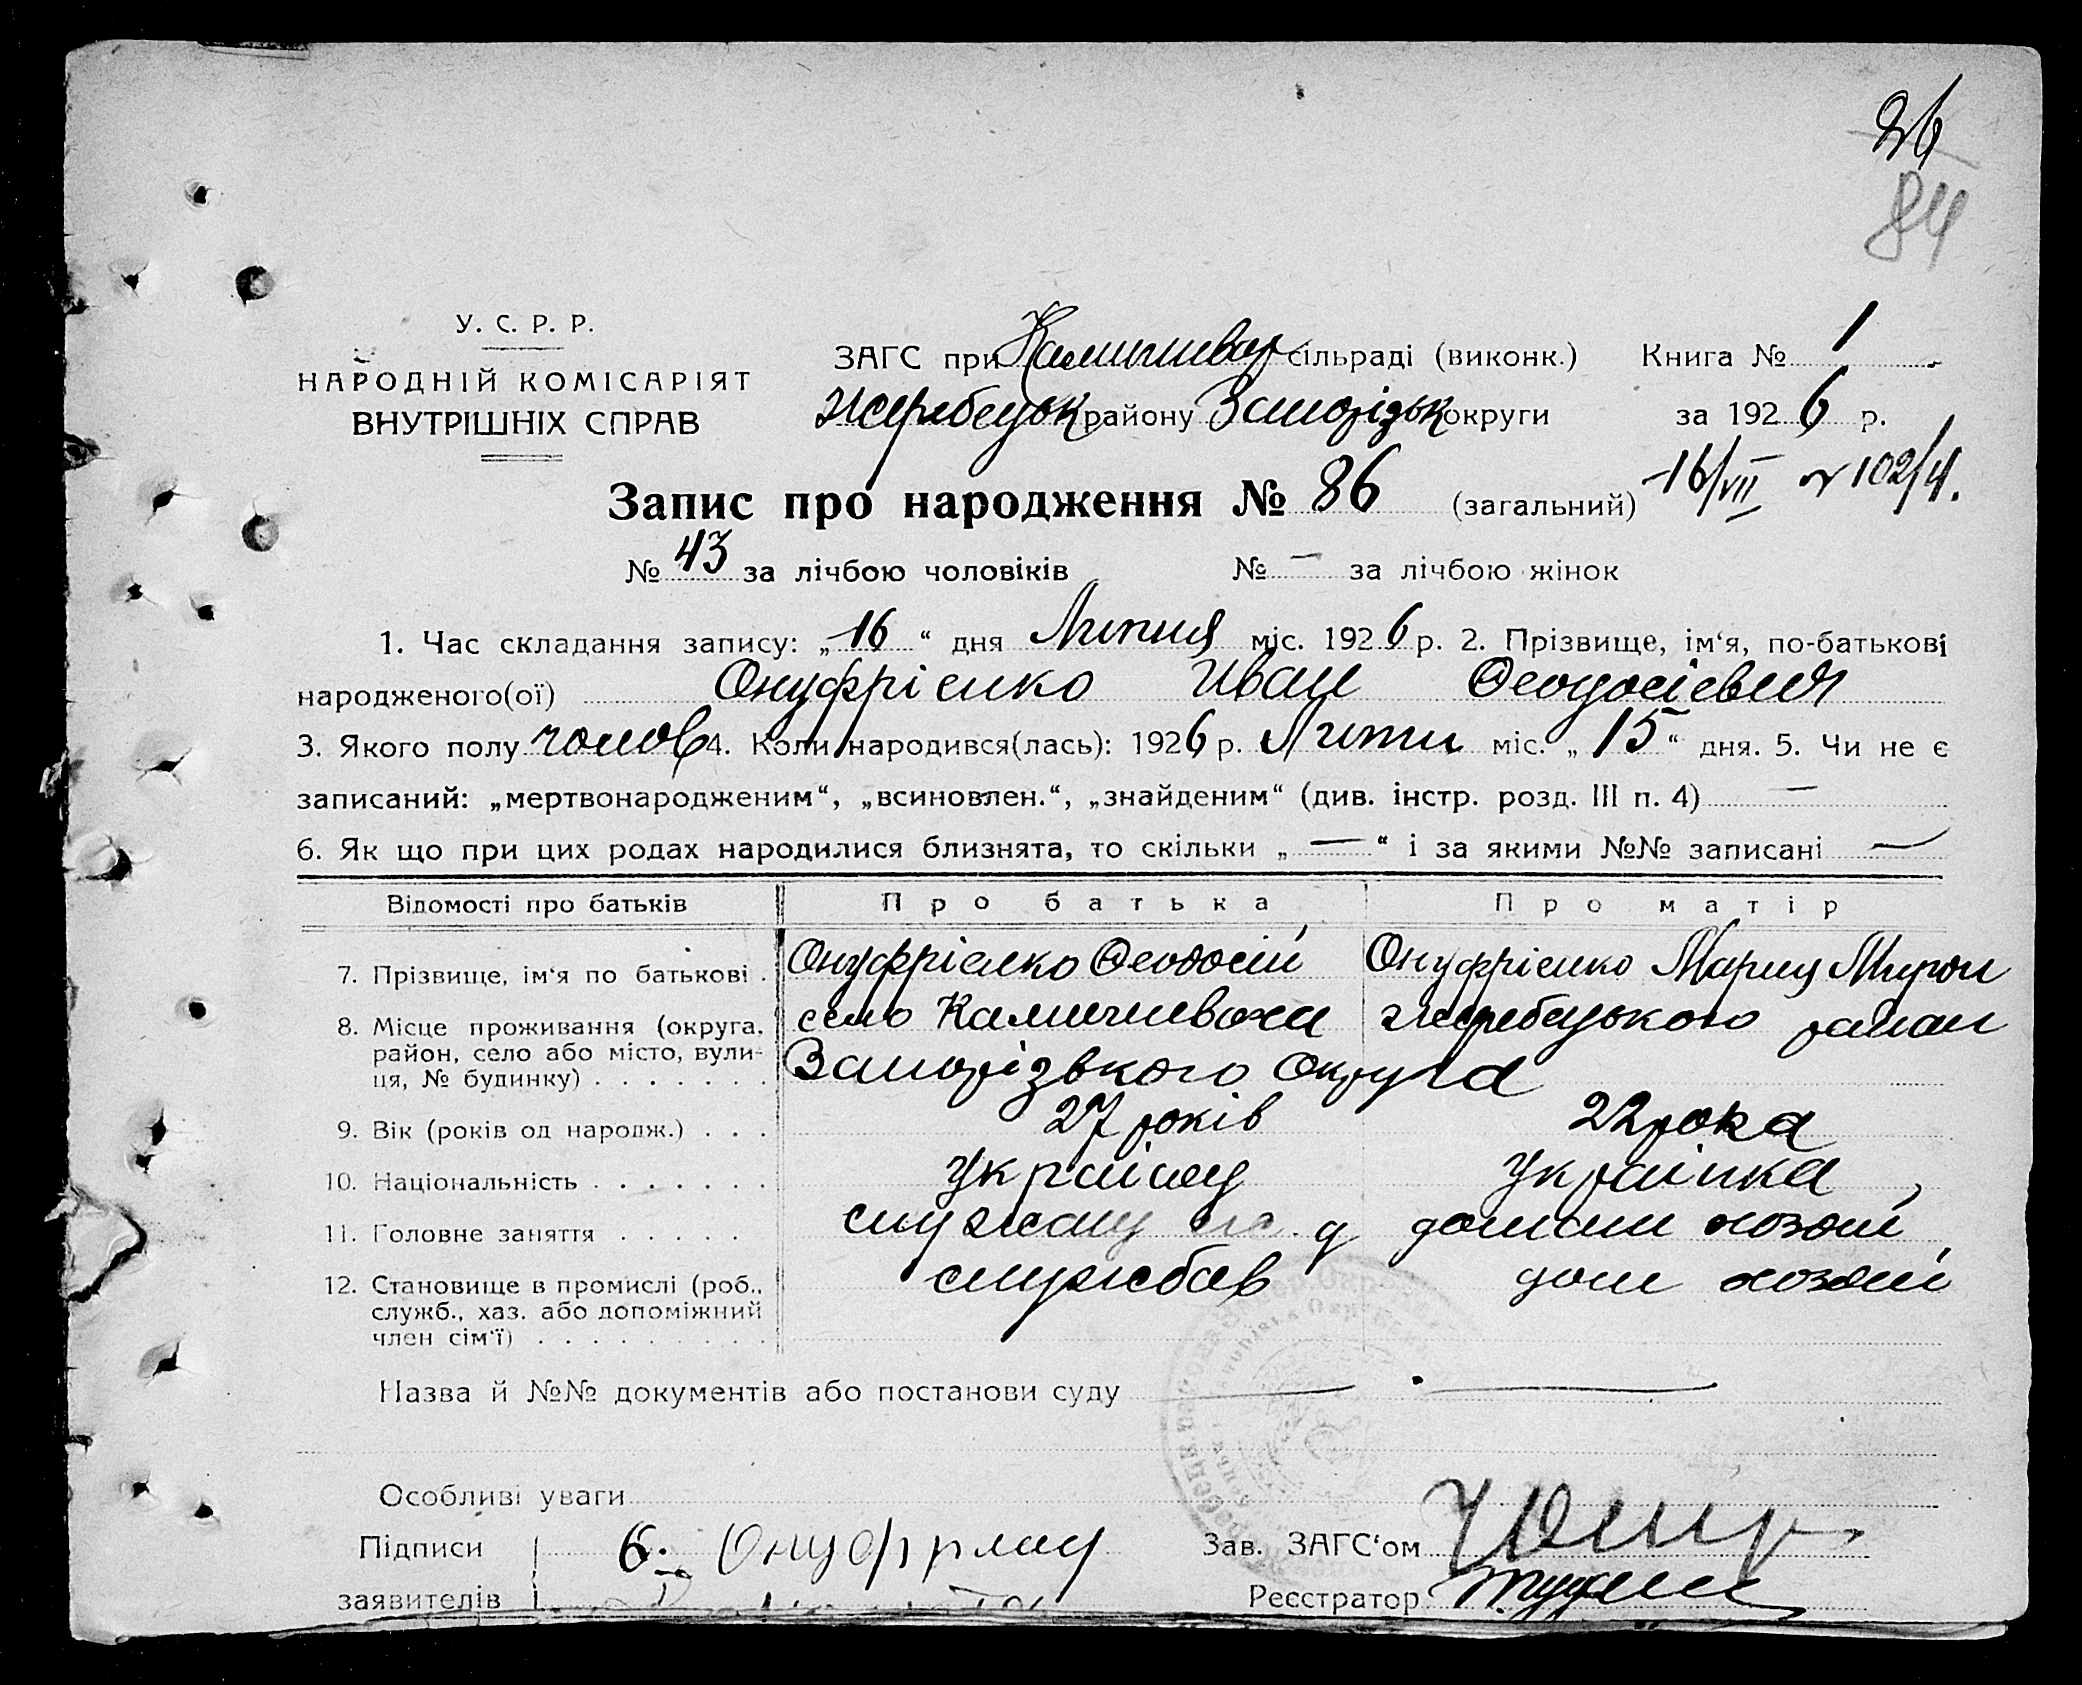 26
84
У. С. Р. Р.
НАРОДНІЙ КОМІСАРІЯТ
ВНУТРІШНІХ СПРАВ
ЗАГС при Камишевах сільраді (виконк.) Книга № 1
Жеребецьк району Запорізьк округи за 1926 р.
Запис про народження № 86 (загальний) 16/VII № 102/4.
№ 43 за лічбою чоловіків № — за лічбою жінок
1. Час складання запису: „16“ дня Липня міс. 1926 р. 2. Прізвище, ім‘я, по-батькові
народженого(ої) Онуфрієнко Иван Феодосієвич
3. Якого полу чолов 4. Коли народився(лась): 1926 р. Липн міс. „15“ дня. 5. Чи не є
записаний: „мертвонародженим“, „всиновлен.“, „знайденим“ (див. інстр. розд. III п. 4) —
6. Як що при цих родах народилися близнята, то скільки „—“ і за якими №№ записані —
Відомості про батьків Про батька Про матір
7. Прізвище, ім‘я по батькові . Онуфрієнко Феодосій Онуфрієнко Мария Мирон
8. Місце проживання (округа, село Камишеваха Жеребецького район
район, село або місто, вули-
ця, № будинку) . . . . . . . Запорізького Округа
9. Вік (років од народж.) . . . 27 років 22 рока
10. Національність . . . . . . . Українец Українка
11. Головне заняття . . . . . домаш хозяй
12. Становище в промислі (роб., службов дом хозяй
служб., хаз. або допоміжний
член сім‘ї) . . . . . . . . .
Назва й №№ документів або постанови суду —
Особливі уваги
Підписи
заявителів
Зав. ЗАГС‘ом
Реєстратор